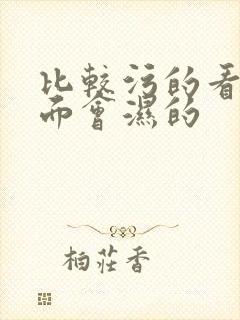 比较污的看
而會濕的
柏莊香